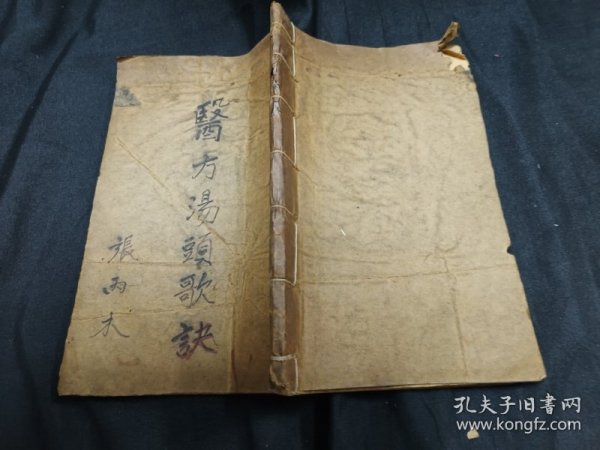 醫方湯頭歌訣
張雨木
孔夫子旧书网
www.kongfz.com